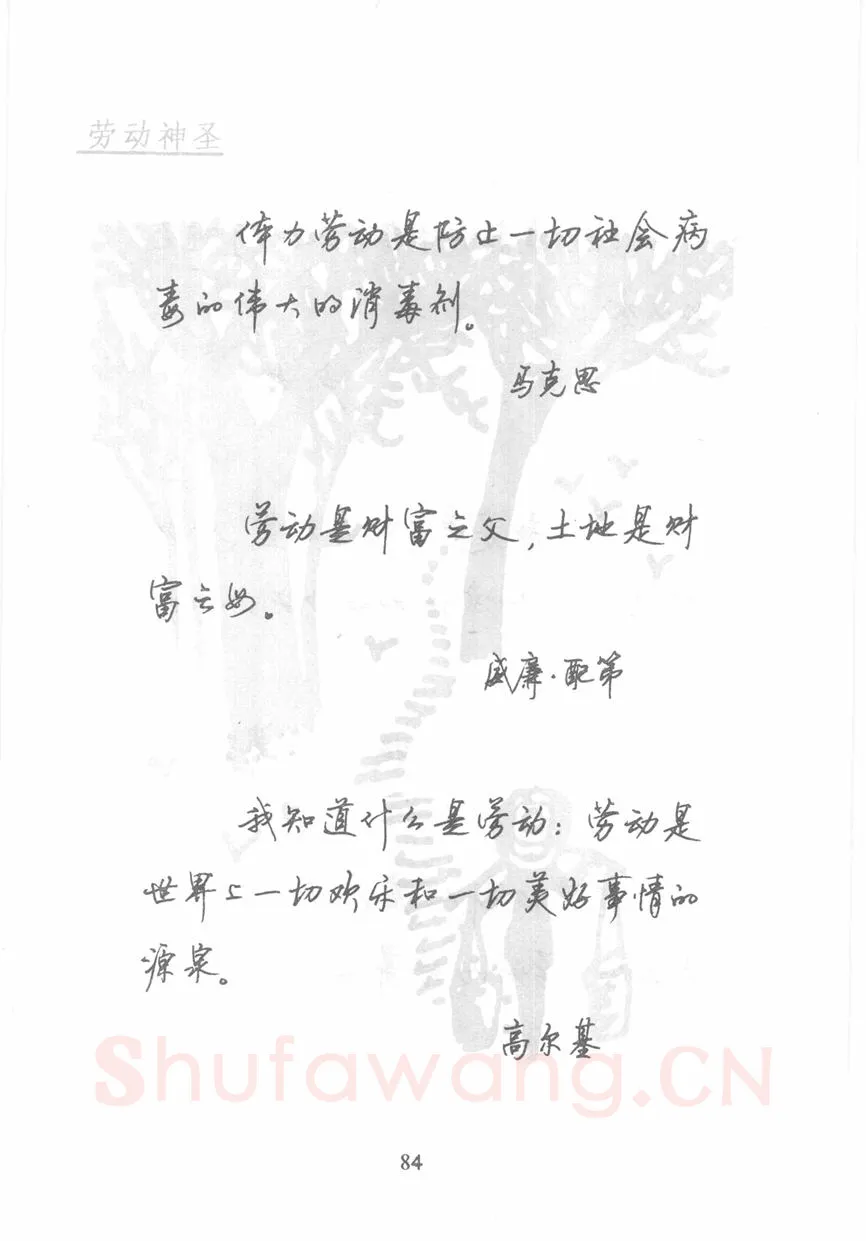 劳动神圣
体力劳动是防止一切社会病
毒的伟大的消毒剂。
马克思
劳动是财富之父,土地是财
富之母。
威廉·配第
我知道什么是劳动:劳动是
世界上一切欢乐和一切美好事情的
源泉。
高尔基
Shufawang.CN
84